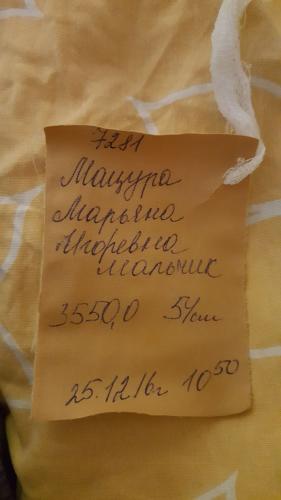 7281
Мацура
Марьяна
Игоревна
мальчик
3550,0 54см
25.12 16г 10⁵⁰